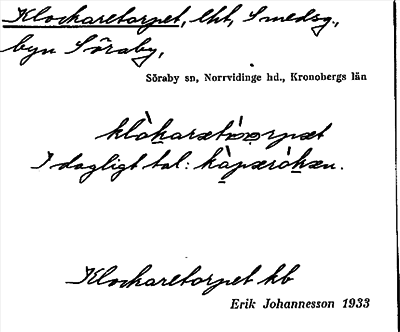 Klockaretorpet, lht, Smedsg.,
byn Söraby,
Söraby sn, Norrvidinge hd., Kronobergs län
klòkaratòrpæt
I dagligt tal: kàpæròkæn.
Klockaretorpet kb
Erik Johannesson 1933